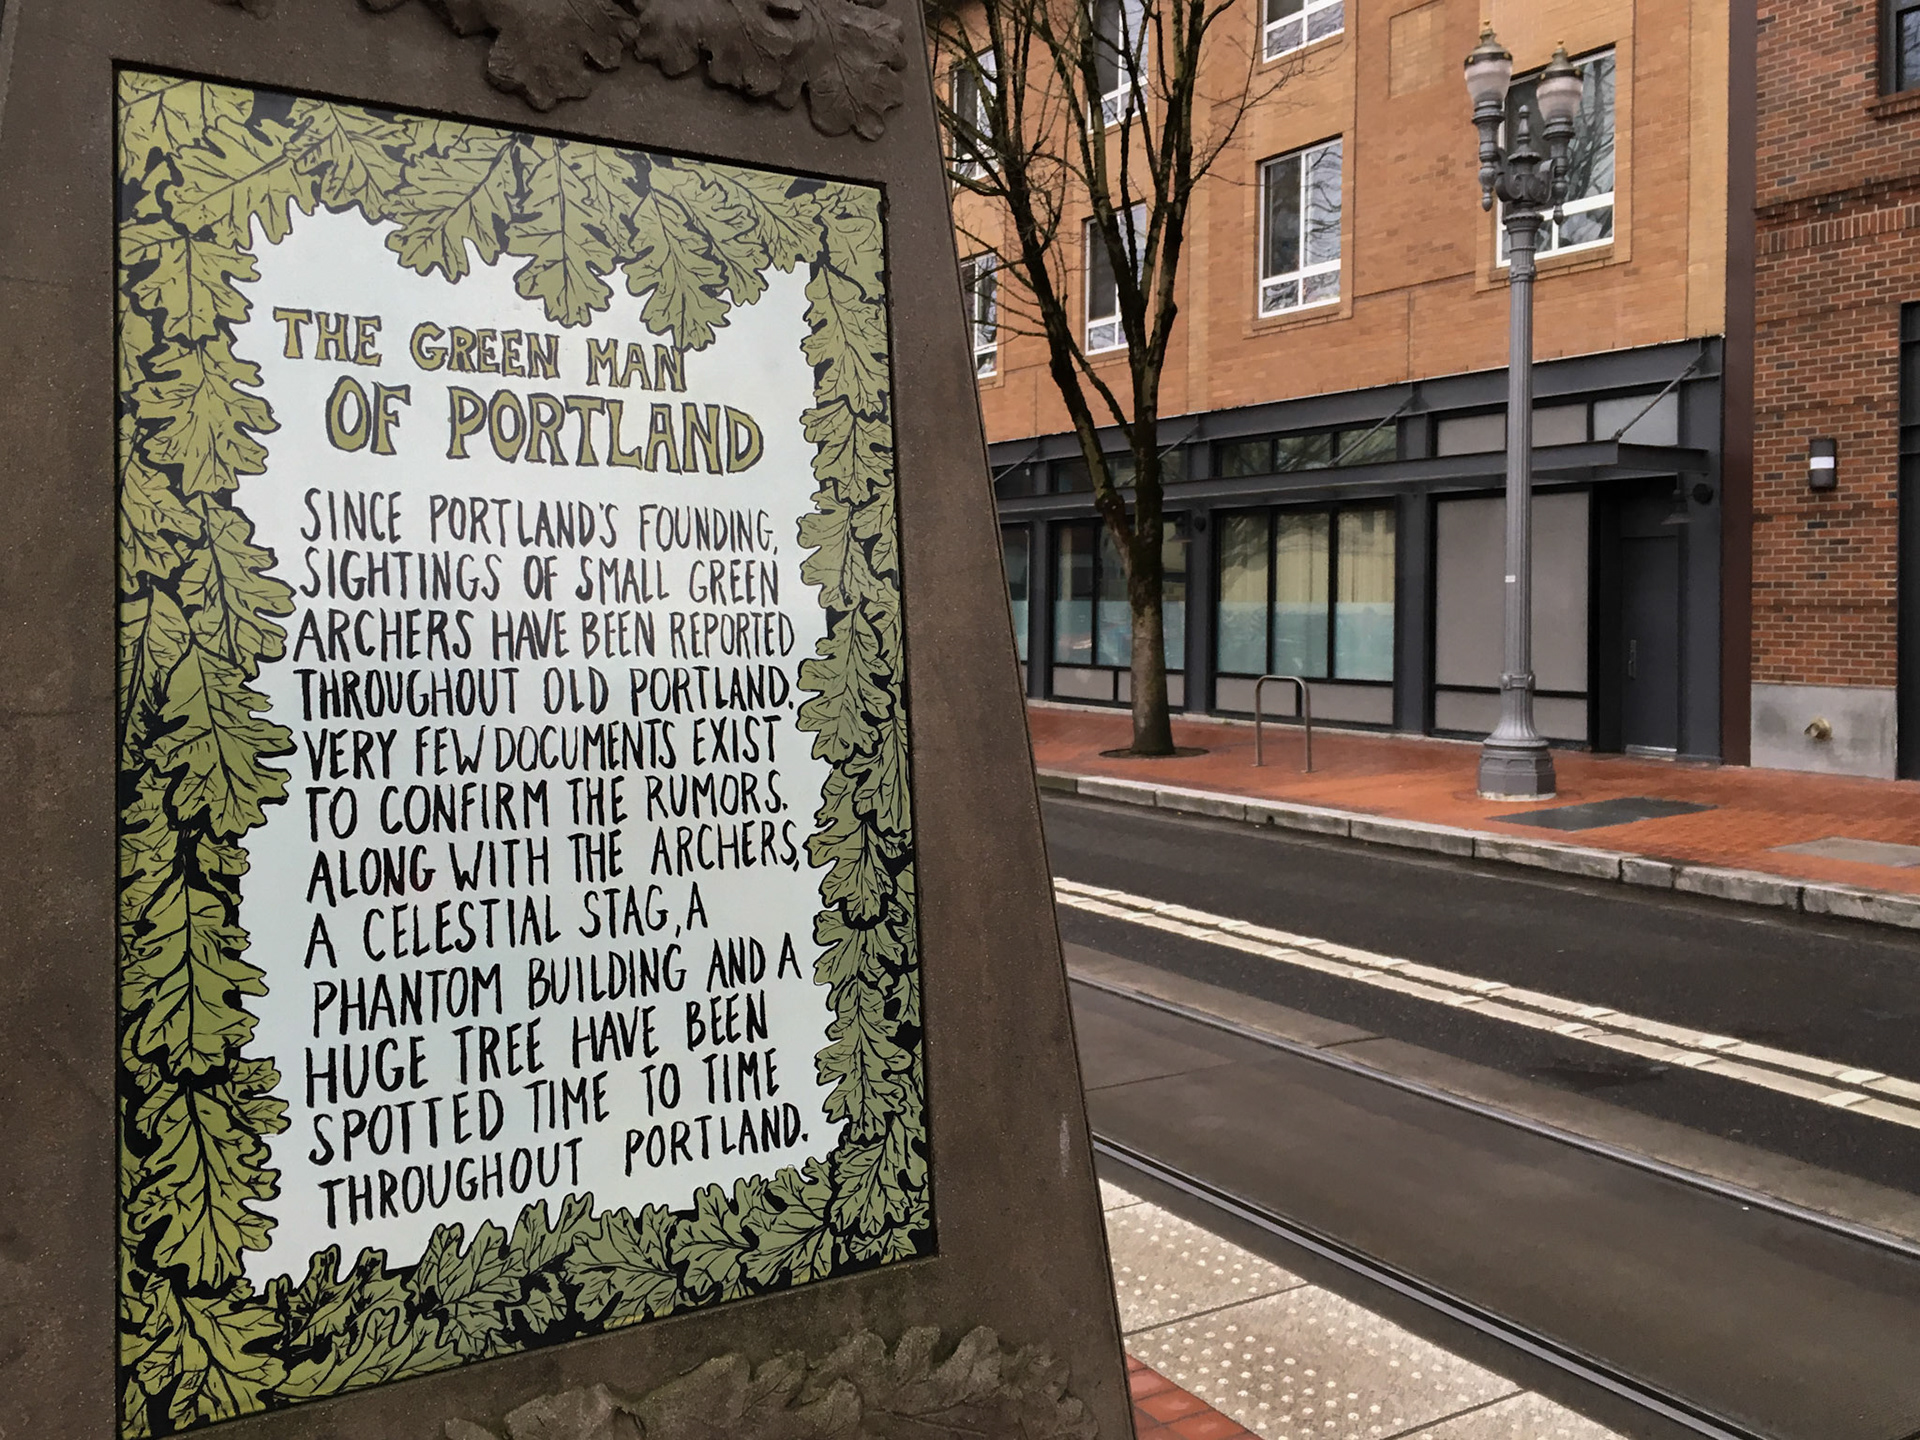 THE GREEN MAN
OF PORTLAND
SINCE PORTLAND'S FOUNDING,
SIGHTINGS OF SMALL GREEN
ARCHERS HAVE BEEN REPORTED
THROUGHOUT OLD PORTLAND.
VERY FEW DOCUMENTS EXIST
TO CONFIRM THE RUMORS.
ALONG WITH THE ARCHERS,
A CELESTIAL STAG, A
PHANTOM BUILDING AND A
HUGE TREE HAVE BEEN
SPOTTED TIME TO TIME
THROUGHOUT PORTLAND.